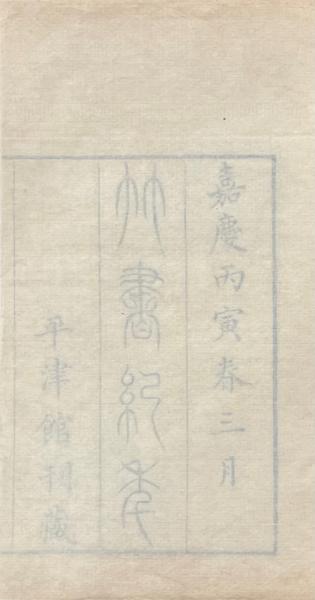 嘉慶丙寅春三月
竹書紀年
平津館刊藏